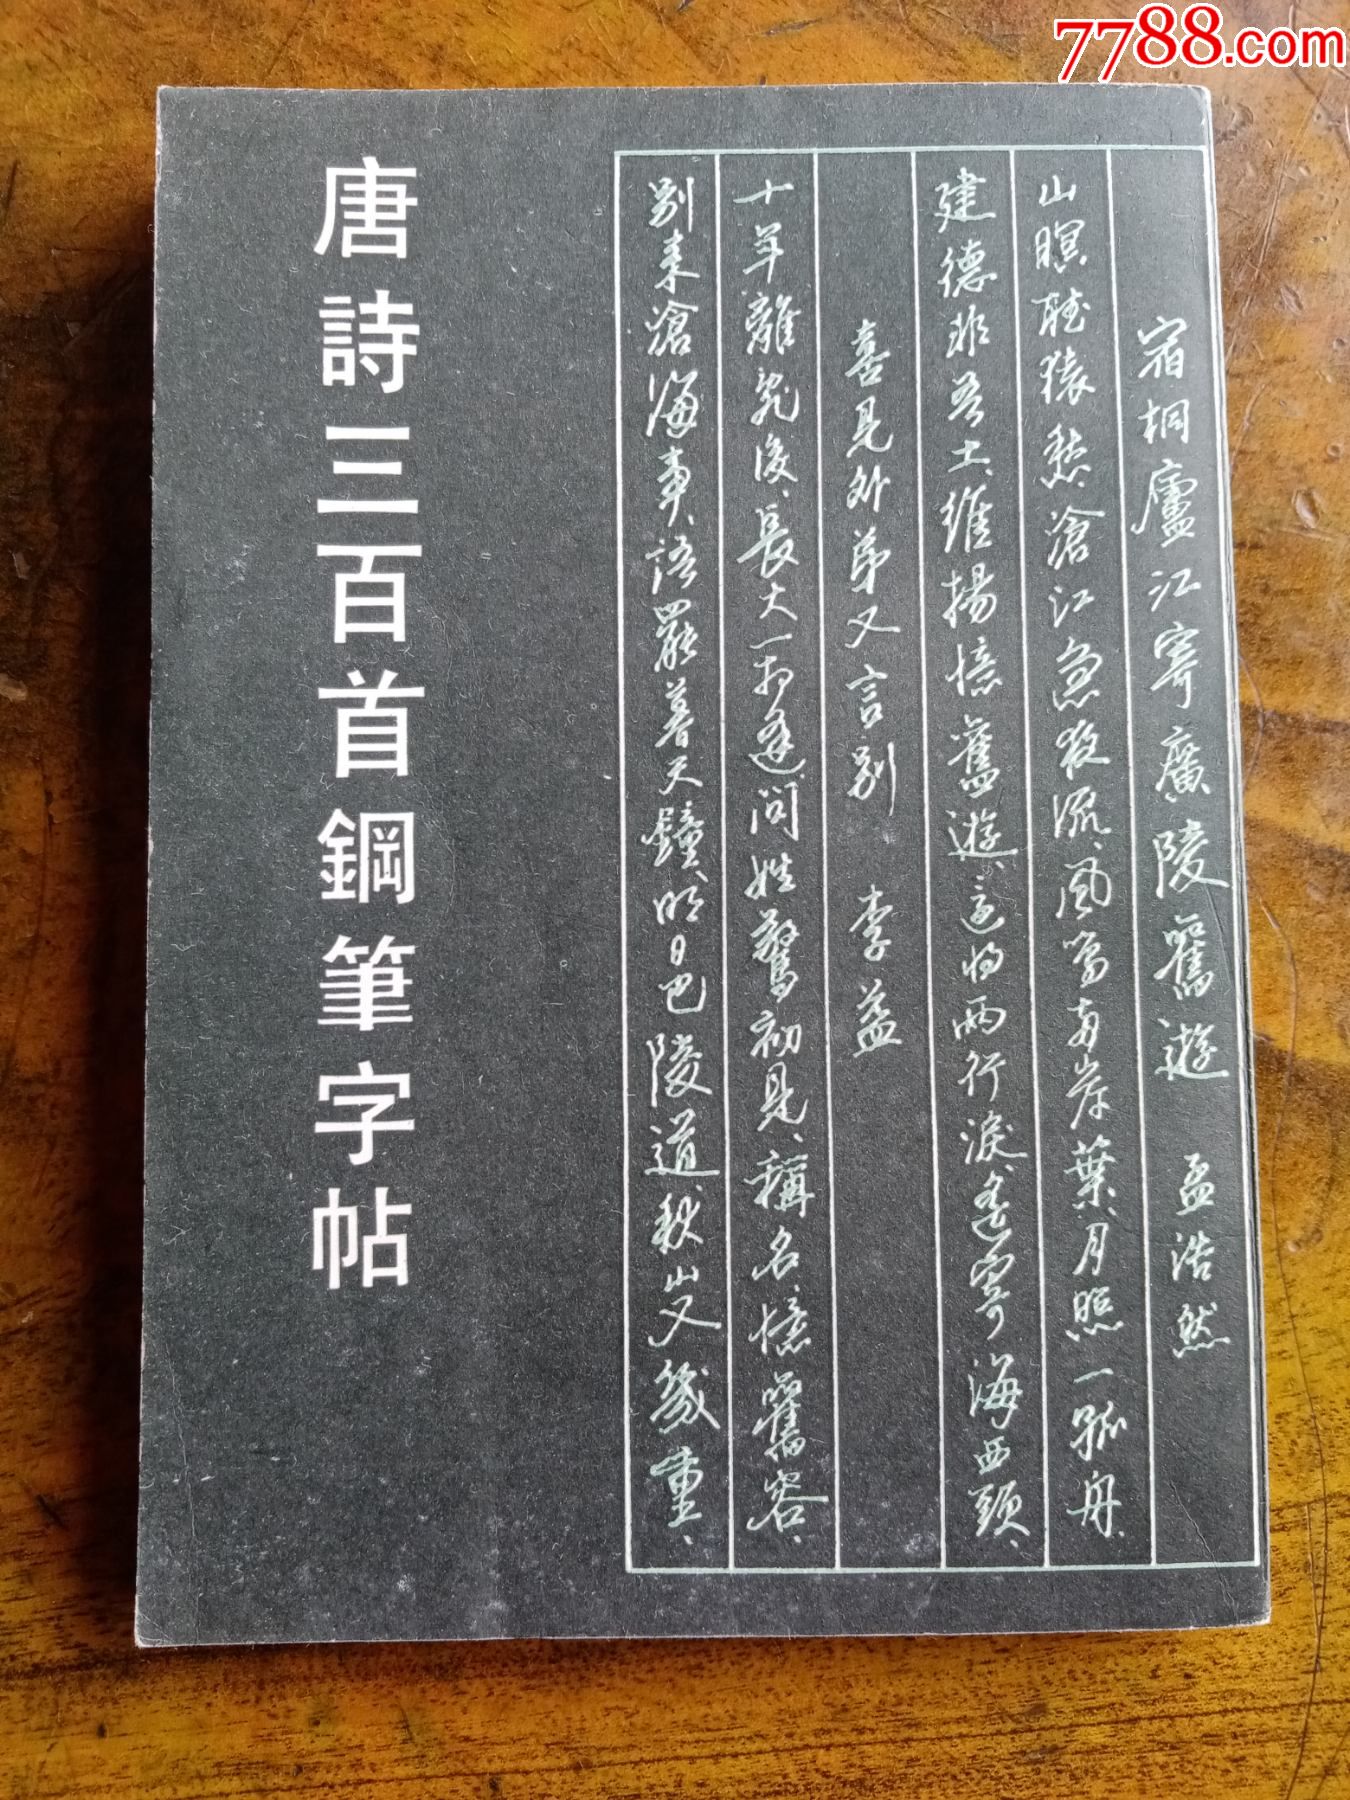 7788.com
唐詩三百首鋼筆字帖
宿桐廬江寄廣陵舊遊 孟浩然
山暝聽猿愁、滄江急夜流、風鳴兩岸葉、月照一孤舟、
建德非吾土、維揚憶舊遊、還將兩行淚、遙寄海西頭、
喜見外弟又言別 李益
十年離亂後、長大一相逢、問姓驚初見、稱名憶舊容、
別來滄海事、語罷暮天鐘、明日巴陵道、秋山又幾重、